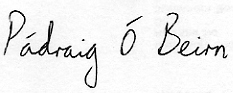 Pádraig Ó Beirn